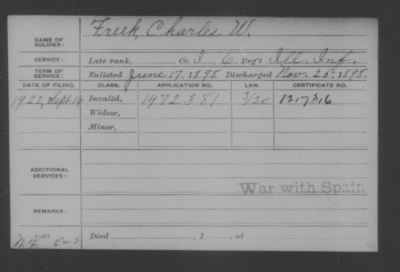 NAME OF SOLDIER: Freek, Charles W.
SERVICE: Late rank, Co. I, 6 Reg't Ill. Inf.
TERM OF SERVICE: Enlisted June 17, 1898 Discharged Nov. 25, 1898.
DATE OF FILING. CLASS. APPLICATION NO. LAW. CERTIFICATE NO.
1922, Sept. 16 Invalid, 1472381
Widow,
Minor,
ADDITIONAL SERVICES:
War with Spain
REMARKS:
Died , 1 , at